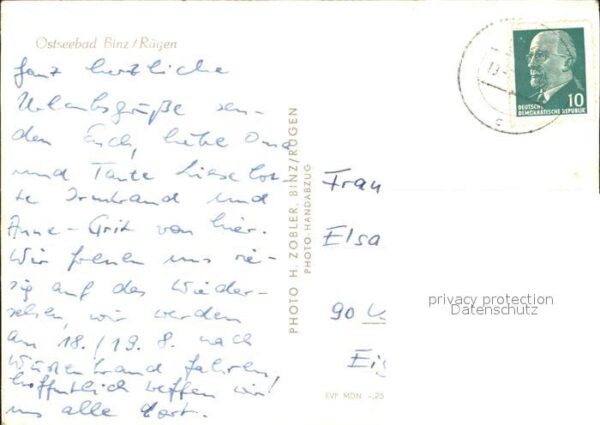 Ostseebad Binz / Rügen
Ganz herzliche
Urlaubsgrüße sen-
den Euch, liebe Oma
und Tante Lieselot-
te Irmtraud und
Anne-Grit von hier.
Wir freuen uns rie-
sig auf das Wieder-
sehen, wir werden
am 18./19.8. nach
Wüstenbrand fahren,
hoffentlich treffen wir
uns alle dort.
PHOTO H. ZOBLER, BINZ/RÜGEN
PHOTO-HANDABZUG
DEUTSCHE
DEMOKRATISCHE REPUBLIK
10
Frau
Elsa
90
privacy protection
Datenschutz
EVP MDN -,25